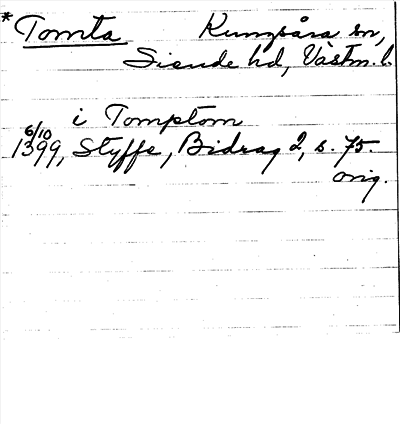 * Tomta Kungsåra sn,
Siende hd, Västm. l.
i Tomptom
6/10
1399, Styffe, Bidrag 2, s. 75.
orig.